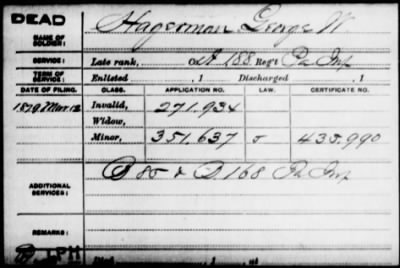 DEAD
NAME OF SOLDIER: Hagerman, George W.
SERVICE: Late rank, Co. A, 188 Reg't Pa Inf
TERM OF SERVICE: Enlisted , 1 Discharged , 1
DATE OF FILING. CLASS. APPLICATION NO. LAW. CERTIFICATE NO.
1879 Mar 12 Invalid, 271.934
Widow,
Minor, 351.637 5 435.990
ADDITIONAL SERVICES: D 85 & D. 168 Pa Inf
REMARKS: